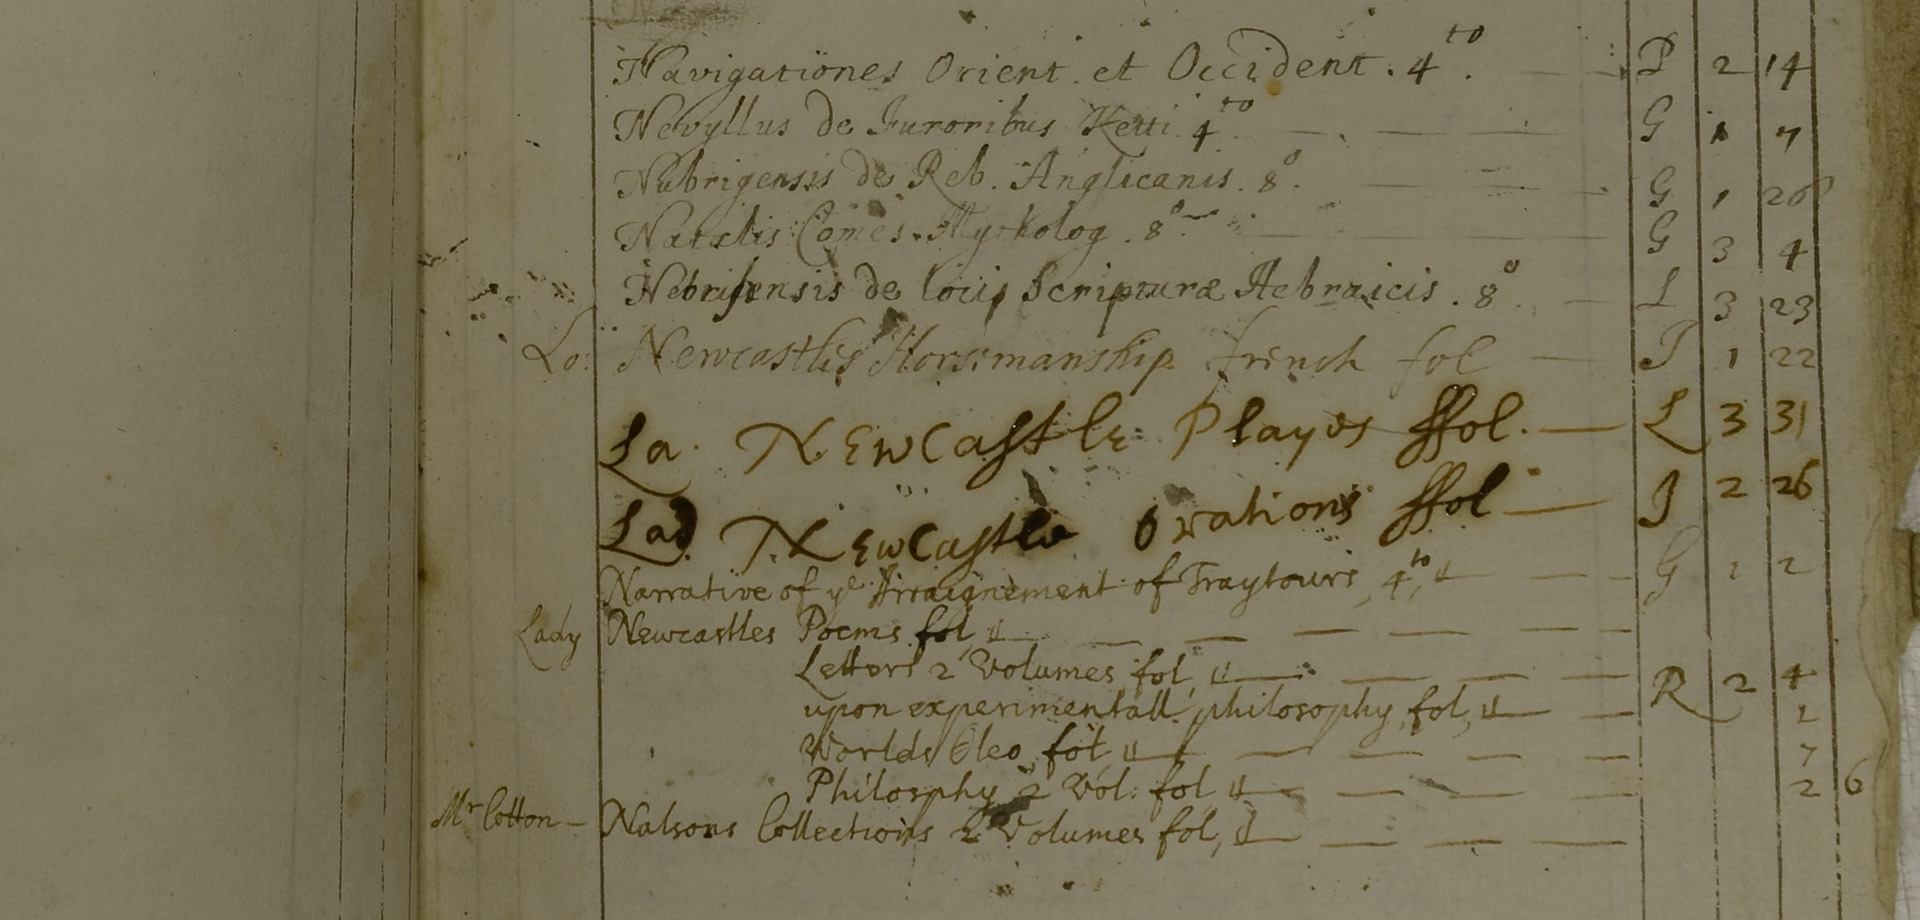 Navigationes Orient. et Occident. 4to. P 2 14
Nevyllus de Furoribus Ketti 4to G 1 7
Nubrigensis de Reb. Anglicanis. 8o. G 1 26
Natalis Comes. Mytholog. 8o G 3 4
Nebrissensis de locis Scripturæ Hebraicis. 8o L 3 23
Lo: Newcastles Horsmanship french fol J 1 22
La. Newcastle Playes ffol. L 3 31
Lad Newcastle Orations ffol J 2 26
Narrative of ye Arraignement of Traytours, 4to, G 1 2
Lady Newcastles Poems fol,
Letters 2 Volumes fol, R 2 4
upon experimentall philosophy, fol, 1
Worlds Oleo, fol, 7
Philosphy 2 Vol. fol 2 6
Mr Cotton – Nalsons Collections 2 Volumes fol,